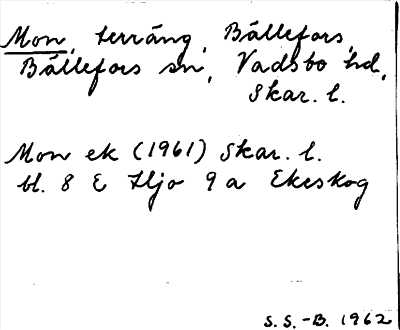 Mon, terräng, Bällefors,
Bällefors sn, Vadsbo hd,
Skar. l.
Mon ek (1961) Skar. l.
bl. 8 E Hjo 9a Ekeskog
S.S.-B. 1962